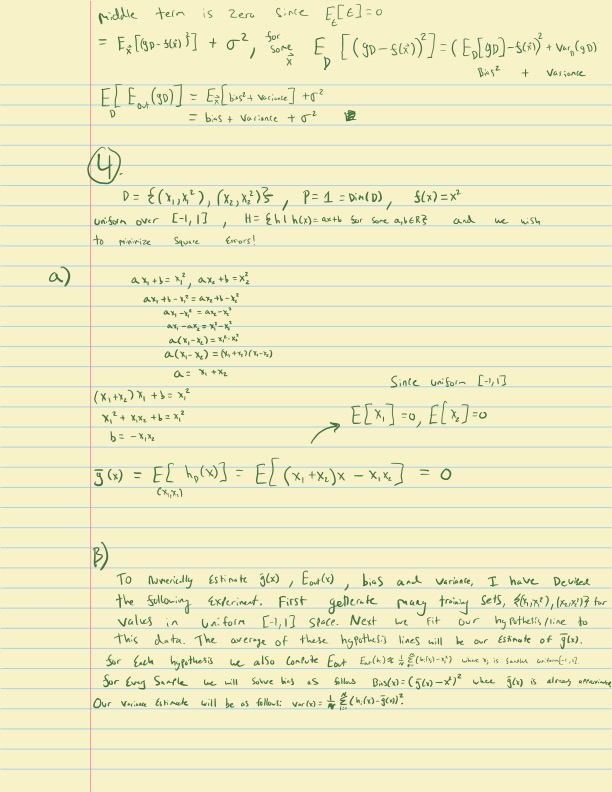 middle term is zero since E_ε[ε]=0
= E_x⃗[(gD-f(x⃗))²] + σ², for some x⃗ E_D[(gD-f(x⃗))²] = (E_D[gD]-f(x⃗))² + Var_D(gD)
Bias² + Variance
E_D[E_out(gD)] = E_x⃗[bias² + variance] + σ²
= bias + variance + σ²
4.
D = {(x₁,x₁²), (x₂,x₂²)}, P = 1 = Dim(D), f(x) = x²
uniform over [-1,1], H = {h | h(x) = ax+b for some a,b∈R} and we wish
to minimize square errors!
a)
ax₁+b = x₁², ax₂+b = x₂²
ax₁+b-x₁² = ax₂+b-x₂²
ax₁-x₁² = ax₂-x₂²
ax₁-ax₂ = x₁²-x₂²
a(x₁-x₂) = x₁²-x₂²
a(x₁-x₂) = (x₁+x₂)(x₁-x₂)
a = x₁+x₂
(x₁+x₂)x₁ + b = x₁²
x₁² + x₁x₂ + b = x₁²
b = -x₁x₂
Since uniform [-1,1]
E[x₁] = 0, E[x₂] = 0
g̅(x) = E_(x₁,x₂)[h_D(x)] = E[(x₁+x₂)x - x₁x₂] = 0
B)
To numerically estimate g̅(x), Eout(x), bias and variance, I have devised
the following experiment. First generate many training sets, {(x₁,x₁²),(x₂,x₂²)} for
values in uniform [-1,1] space. Next we fit our hypothesis/line to
this data. The average of these hypothesis lines will be our estimate of g̅(x).
for each hypothesis we also compute Eout Eout(h) ≈ 1/N Σ(h(xᵢ)-xᵢ²)² where xᵢ is sampled uniform[-1,1].
for every sample we will solve bias as follows Bias(x) = (g̅(x)-x²)² where g̅(x) is already
Our variance estimate will be as follows: var(x) = 1/N Σ(hᵢ(x)-g̅(x))².